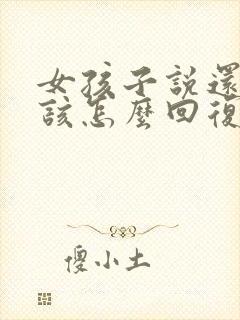 女孩子說還
該怎麼回復
傻小土